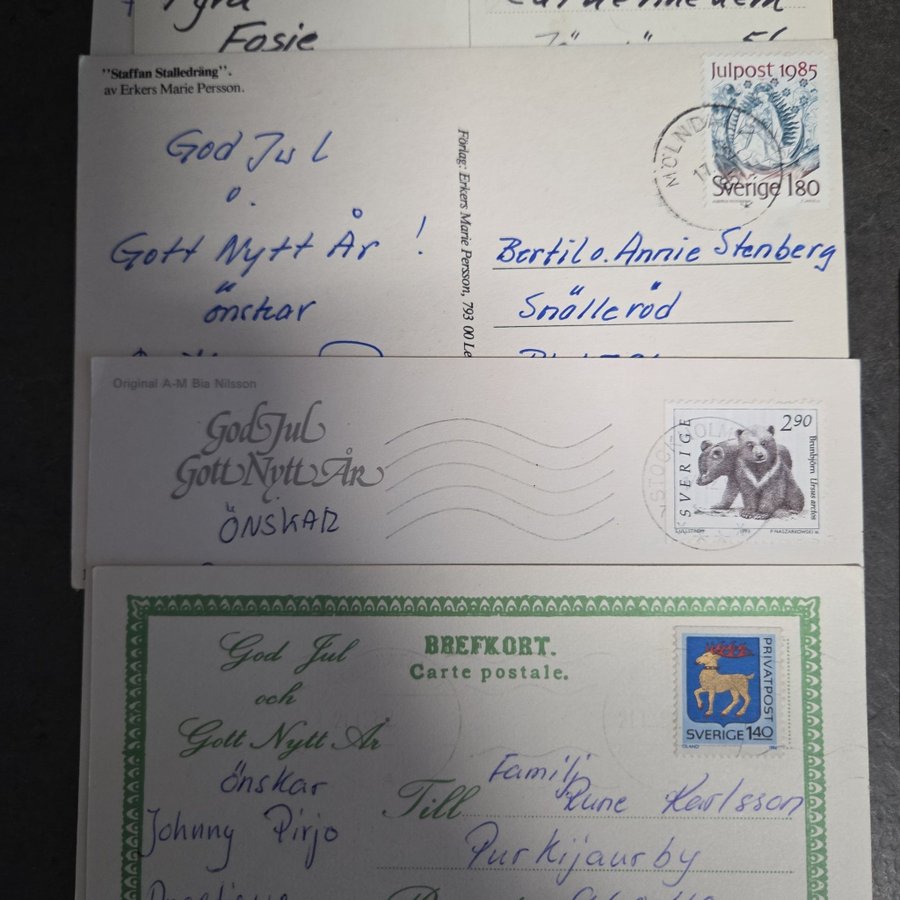 Fosie
"Staffan Stalledräng".
av Erkers Marie Persson.
God Jul
o.
Gott Nytt År !
önskar
Förlag: Erkers Marie Persson, 793 00 Le
Julpost 1985
Sverige 180
MÖLND
17
Bertil o. Annie Stenberg
Snålleröd
Original A-M Bia Nilsson
God Jul
Gott Nytt År
ÖNSKAR
SVERIGE
2.90
Brunbjörn Ursus arctos
God Jul
och
Gott Nytt År
önskar
Johnny Pirjo
BREFKORT.
Carte postale.
PRIVATPOST
SVERIGE 1.40
Till Familj
Rune Karlsson
Purkijaurby